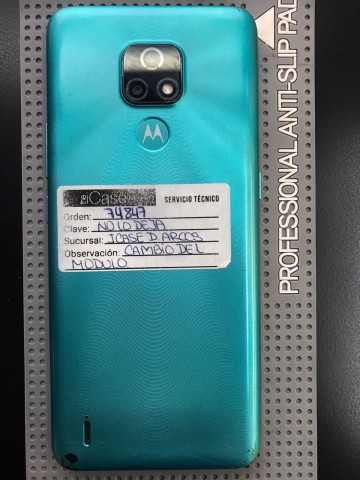 iCase SERVICIO TÉCNICO
Orden: 74847
Clave: NO LO DEJA
Sucursal: ICASE D. ARCOS
Observación: CAMBIO DEL
MODULO
PROFESSIONAL ANTI-SLIP PAD